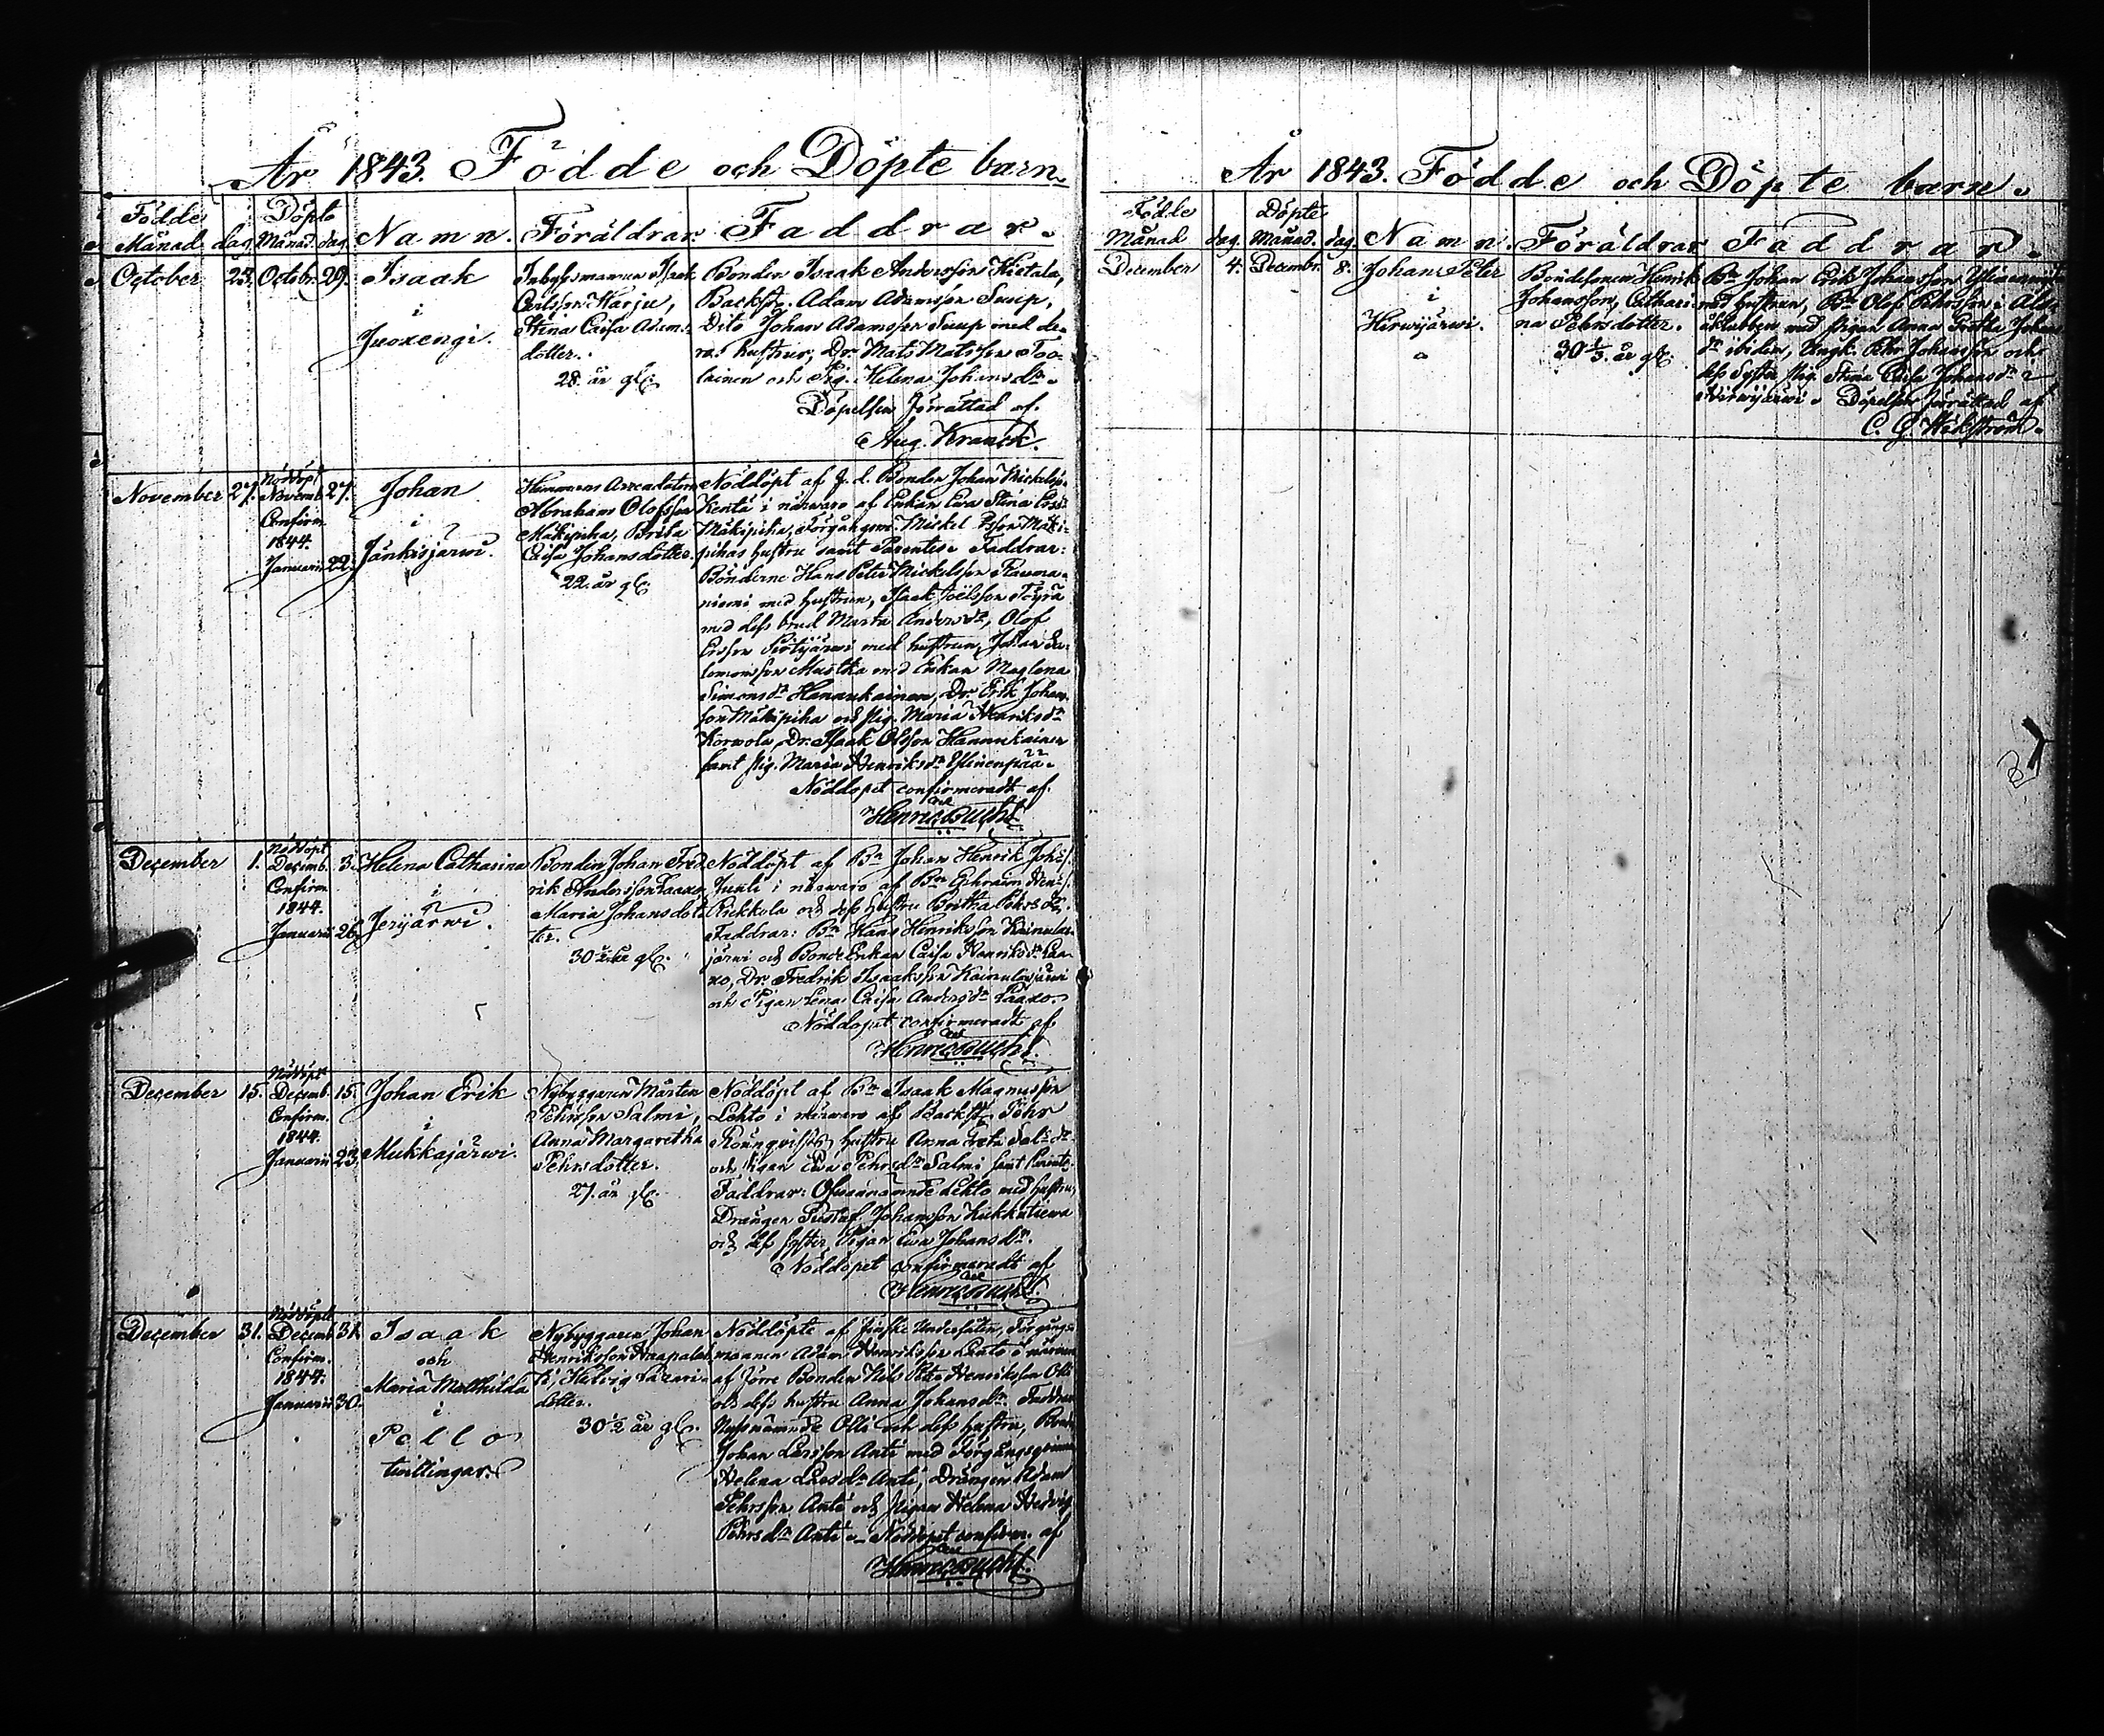 År 1843. Födde och Döpte barn.
Födde Döpte
Månad dag Månad. dag. Namn. Föräldrar. Faddrar.
October 23. Octobr. 29. Isaak
i
Juoxengi.
Inhysesmannen Isaak
Carlsson Harju,
Stina Caisa Adams
dotter.
28. år gl.
Bonden Isaak Andersson Kietala,
Backst. Adam Adamsson Suup,
Dito Johan Adamsson Suup med de-
ras hustrur, Dr. Mats Matsson Too-
lainen och Pig. Helena Johansdr.
Döpelsen förrättad af.
Aug. Kranck.
November 27. Nöddöpt
Novemb. 27.
Confirm.
1844.
Januarii 22.
Johan
i
Jänkisjärwi.
Hemmans Arrendatorn
Abraham Olofsson
Mäkipiha, Brita
Caisa Johansdotter.
22. år gl.
Nöddöpt af f. d. Bonden Johan Mickelss.
Kentä i närwaro af Enkan Ewa Stina Erss:
Mäkipiha, Förgångsm. Mickel Ersson Mäki-
pihas hustru samt Parentes. Faddrar:
Bönderne Hans Peter Mickelsson Rauma-
niemi med hustrun, Isaak Joëlsson Töyrä
med dess brud Marta Andersdr, Olof
Ersson Pirttijärwi med hustrun, Johan Sa-
lomonsson Mustka med Enkan Maglena
Simonsdr Hannukainen, Dr. Erik Johans-
son Mäkipiha och pig. Maria Henriksdr
Korwola, Dr. Isaak Olsson Hannukainen
samt pig. Maria Henriksdr Ylinenpää.
Nöddopet confirmeradt af.
Henric Bucht.
December 1. Nöddöpt
Decemb. 3.
Confirm.
1844.
Januarii 26.
Helena Catharina
i
Jerijärwi.
Bonden Johan Fred
rik Andersson Laaxo,
Maria Johansdot
ter.
30 år gl.
Nöddöpt af Bn Johan Henrik Johss.
Junti i närwaro af Bn Ephraim Henss.
Rickkola och dess hustru Britha Pehrsdr,
Faddrar: Bn Hans Henriksson Kainulas-
järwi och Bonde Enkan Caisa Henriksdr Laa-
xo, Dr. Fredrik Isaaksson Kainulasjärwi
och Pigan Lena Caisa Andersdr Laaxo.
Nöddopet confirmeradt af
Henric Bucht.
December 15. Nöddöpt
Decemb. 15.
Confirm.
1844.
Januarii 23.
Johan Erik
i
Mukkajärwi.
Nybyggaren Mårten
Pehrsson Salmi,
Anna Margaretha
Pehrsdotter.
27. år gl.
Nöddöpt af Bn Isaak Magnusson
Lehto i närwaro af Backst. Pehr
Rounqvists hustru Anna Greta Sals. dr
och Pigan Ewa Pehrsdr Salmi samt Parents.
Faddrar: Ofwannämnde Lehto med hustru,
Drängen Gustaf Johansson
och dess syster Pigan Ewa Johansdr.
Nöddopet confirmeradt af
Henric Bucht.
December 31. Nöddöpte
Decemb. 31.
Confirm.
1844.
Januarii 30.
Isaak
och
Maria Mathilda
i
Pello
twillingar.
Nybyggaren Johan
Henriksson Haapalak
ki, Helvig Lazari-
dotter.
30 1/2 år gl.
Nöddöpte af finske Undersåten, Förgångs-
mannen Adam Henriksson Lento i närwaro
af förre Bonden Nils Petter Henriksson Olli
och dess hustru Anna Johansdr. Faddrar
Nyssnämnde Olli och dess hustru, Bonden
Johan Larsson Anti med Förgångsqvinnan
Helena Larsdr Anti, Drängen Adam
Pehrsson Anti och Pigan Helena Hedvig
Pehrsdr Anti. Nöddopet confirm. af
Henric Bucht.
År 1843. Födde och Döpte barn.
Födde Döpte
Månad dag. Månad. dag. Namn. Föräldrar Faddrar.
December 4. Decembr. 8. Johan Peter
i
Hirwijärwi.
Bondesonen Henrik
Johansson, Cathari-
na Pehrsdotter.
30 1/3. år gl.
Bn Johan Erik Johansson
med hustrun, Bn Olof Pehrsson i
med pigan Anna Gretha Johans
dr ibidem, Ungk. Pehr Johansson och
dess syster pig. Stina Caisa Johansdr i
Hirwijärwi. Döpelsen förrättad af
C. G. Wikström.